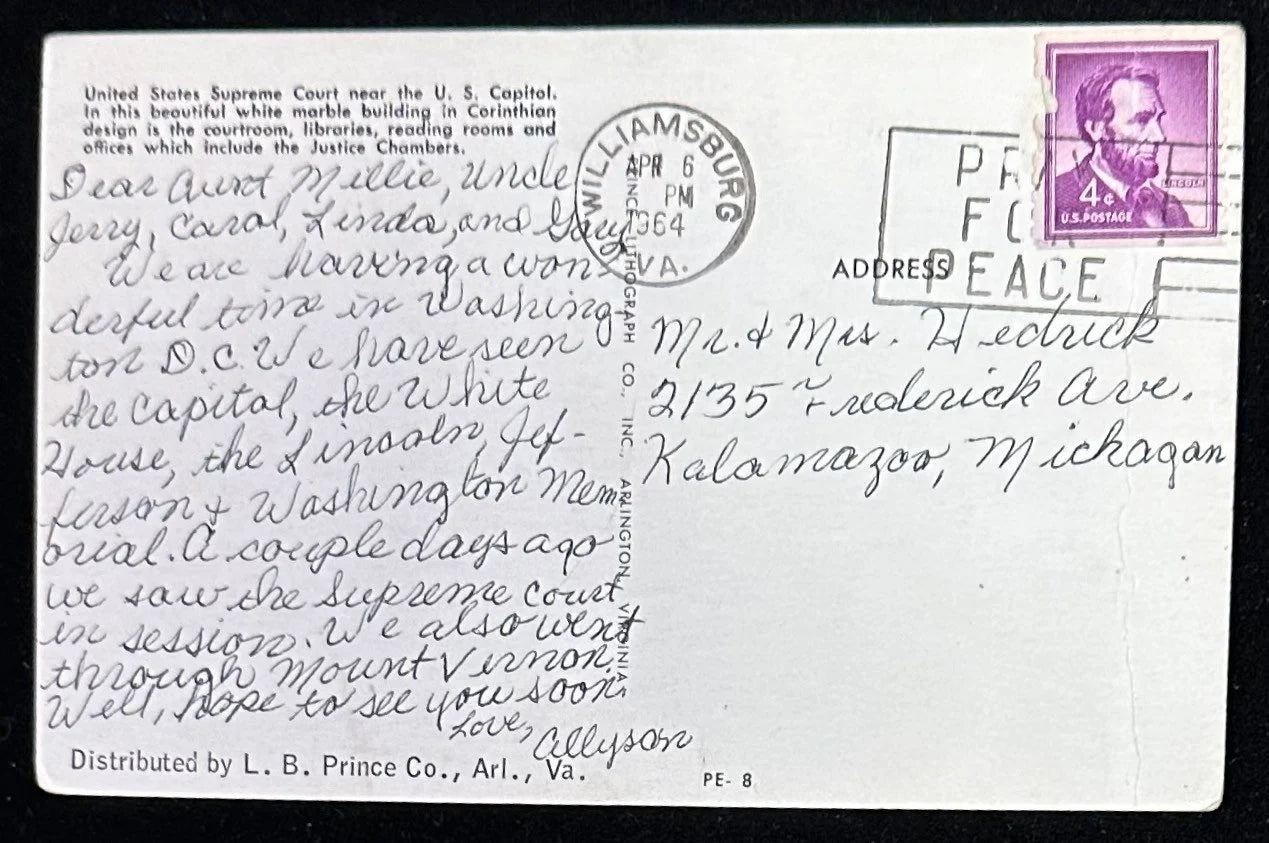 United States Supreme Court near the U. S. Capitol.
In this beautiful white marble building in Corinthian
design is the courtroom, libraries, reading rooms and
offices which include the Justice Chambers.
Dear Aunt Millie, Uncle
Jerry, Carol, Linda, and Gary
We are having a won-
derful time in Washing-
ton D.C. We have seen
the Capital, the White
House, the Lincoln, Jef-
ferson & Washington Mem-
orial. A couple days ago
we saw the Supreme Court
in session. We also went
through Mount Vernon.
Well, hope to see you soon.
Love,
Allyson
Distributed by L. B. Prince Co., Arl., Va.
PRINCE LITHOGRAPH CO., INC., ARLINGTON, VIRGINIA
WILLIAMSBURG
APR 6
PM
1964
VA.
PEACE
LINCOLN
4¢
U.S. POSTAGE
ADDRESS
Mr. & Mrs. Hedrick
2135 Frederick Ave.
Kalamazoo, Mickagan
PE- 8